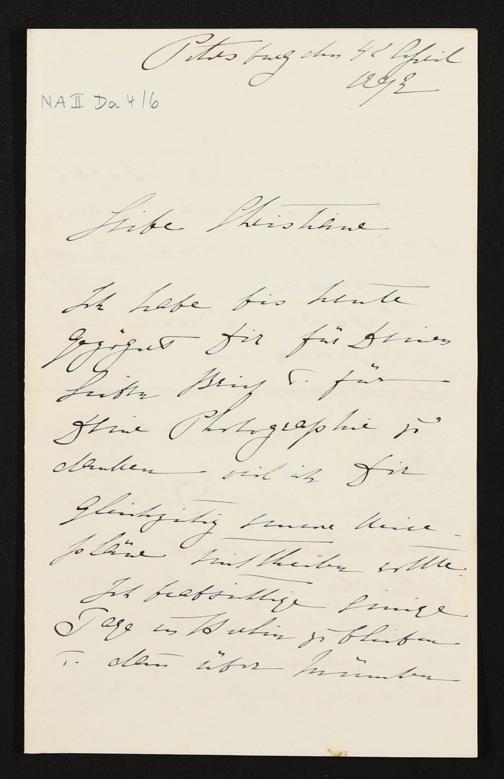 Petersburg den April
NA II Da 4/6
Liebe Christiane
Ich habe bis heute
gezögert Dir für Deinen
lieben Brief u. für
Deine Photographie zu
danken weil ich Dir
gleichzeitig meine Reise-
pläne mittheilen wollte.
Ich beabsichtige einige
Tage in Berlin zu bleiben
u. dann über München